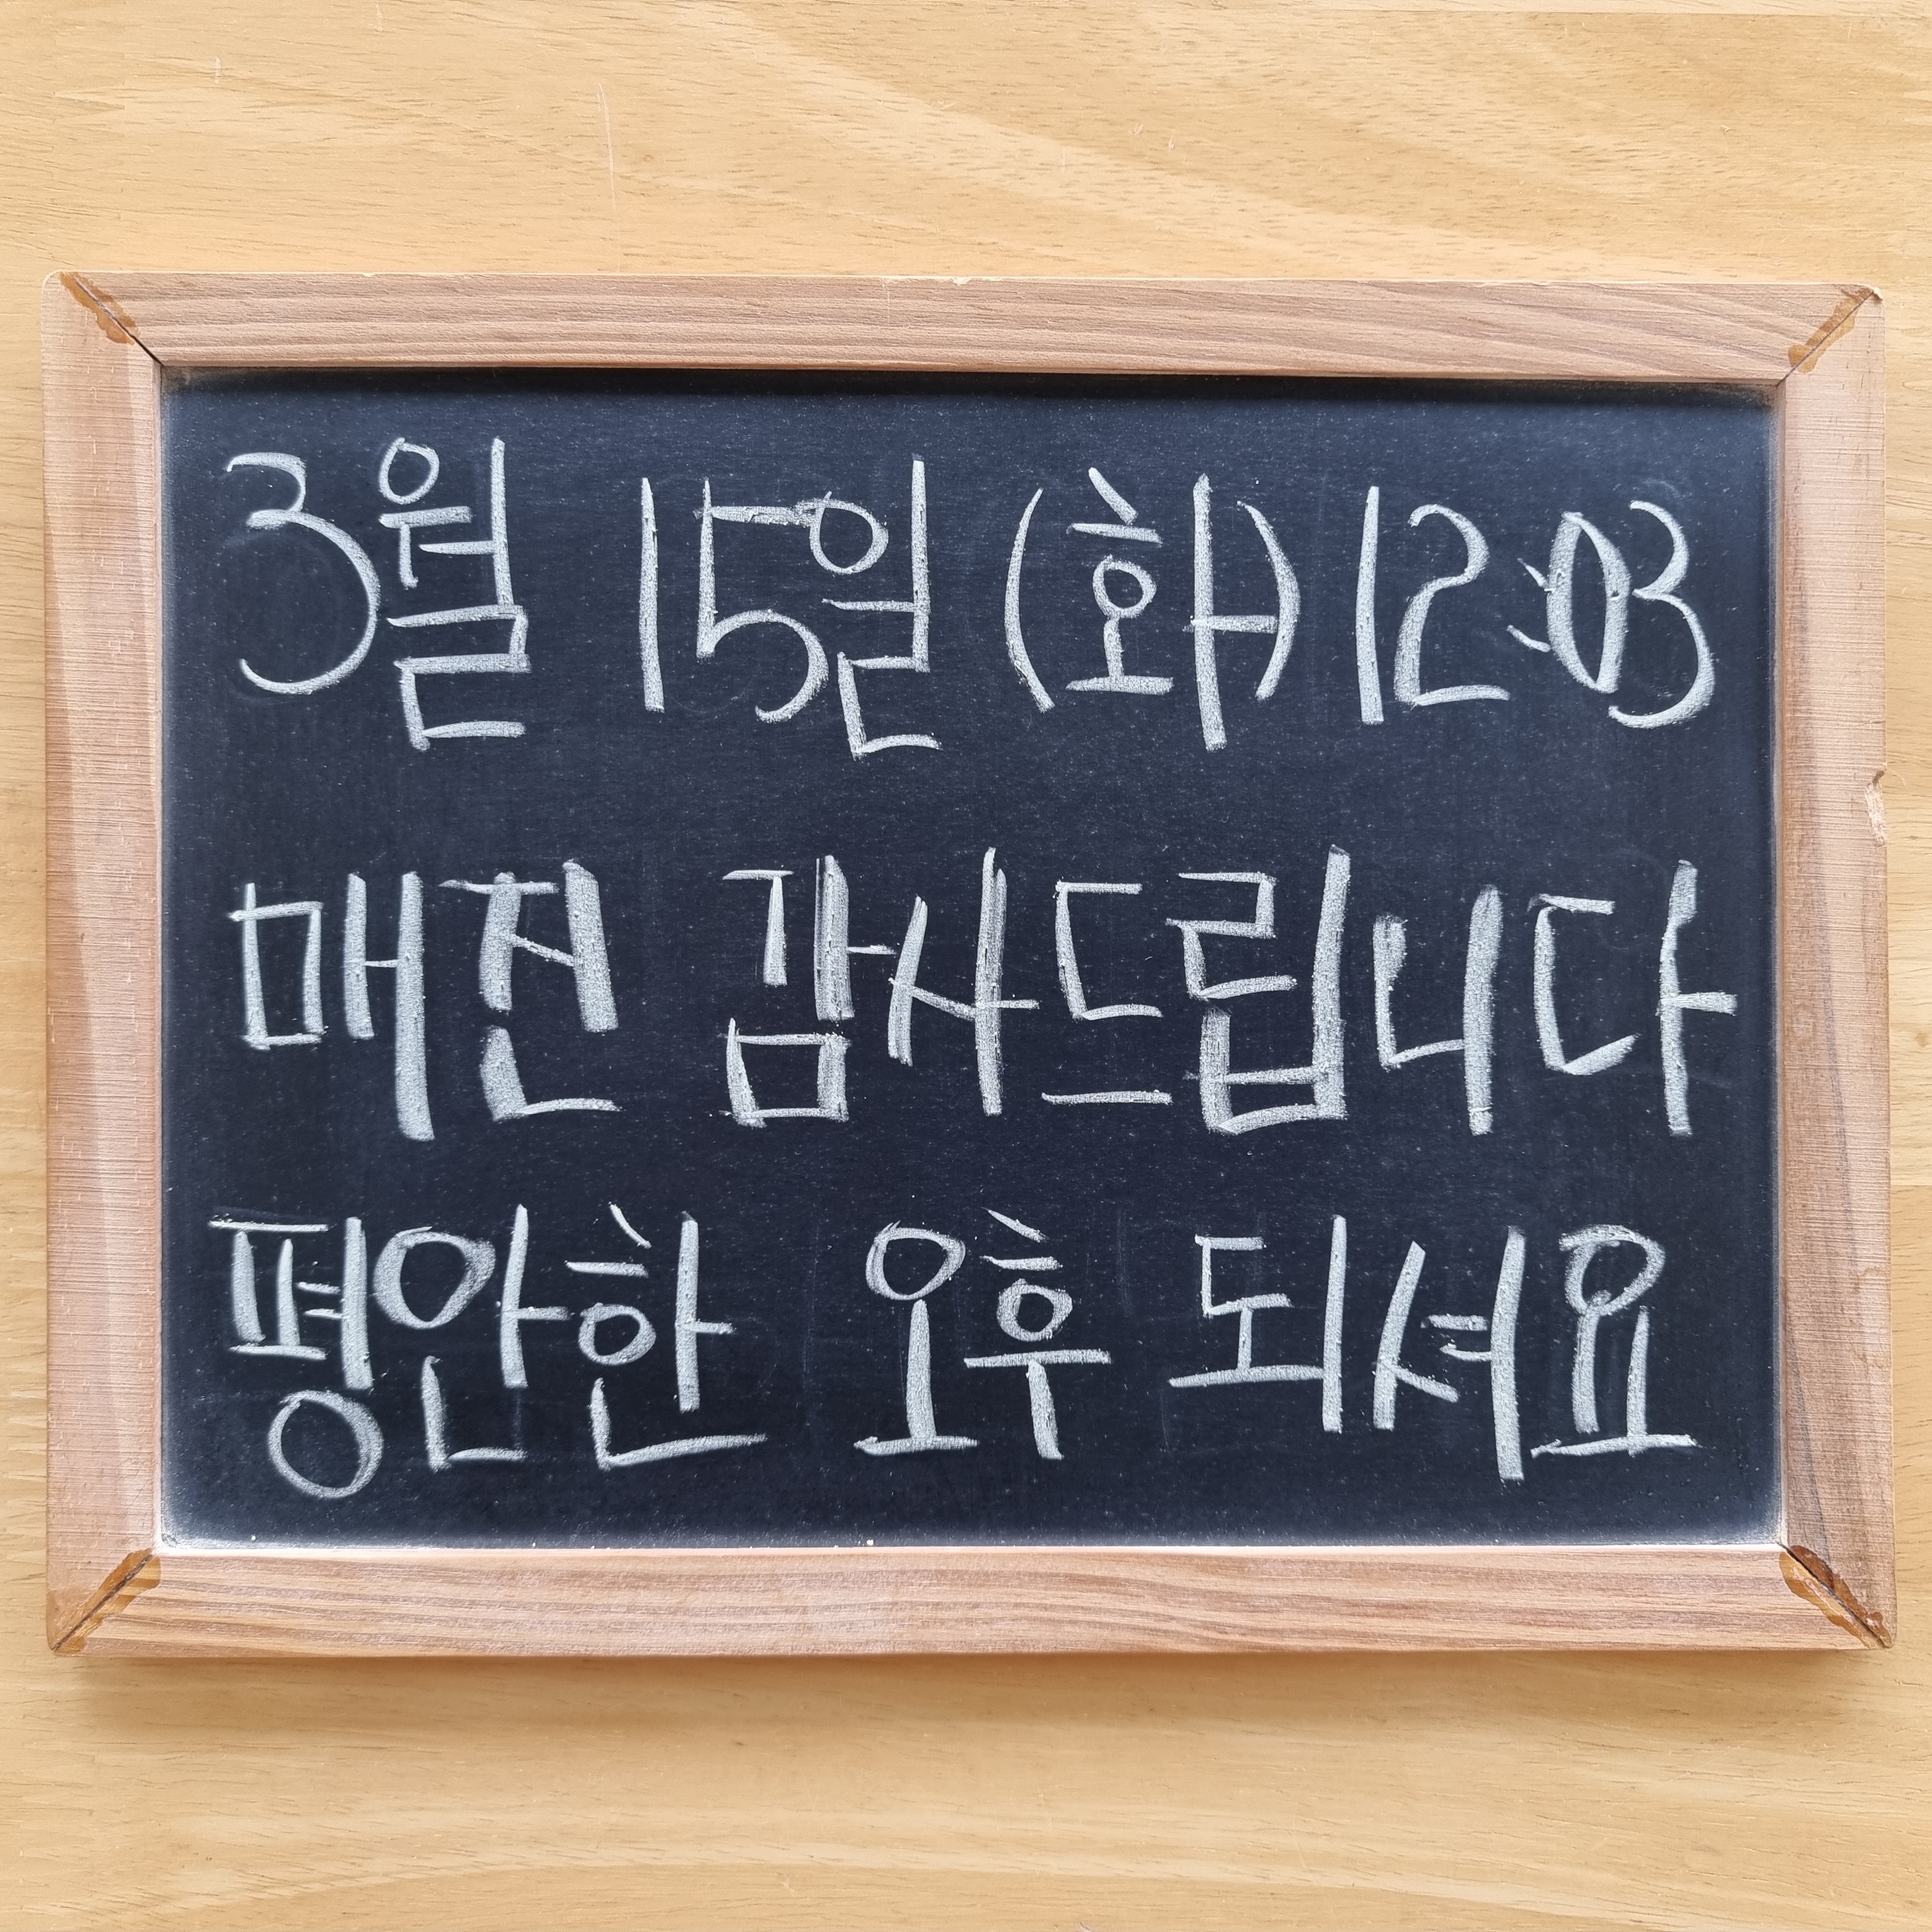 3월 15일 (화) 12:03
매진 감사드립니다
평안한 오후 되셔요